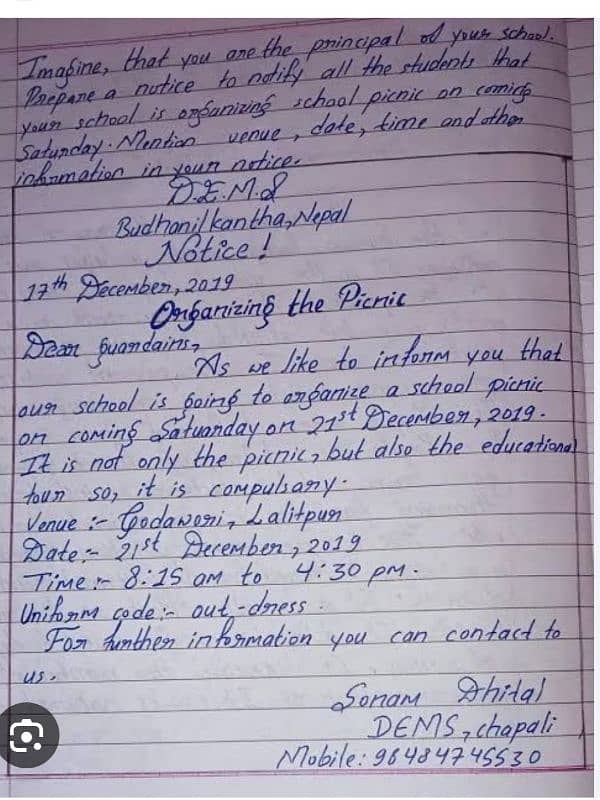 Imagine, that you are the principal of your school.
Prepare a notice to notify all the students that
your school is organizing school picnic on coming
Saturday. Mention venue, date, time and other
information in your notice.
D.E.M.S
Budhanilkantha, Nepal
Notice!
17th December, 2019
Organizing the Picnic
Dear guardains,
As we like to inform you that
our school is going to organize a school picnic
on coming Satuarday on 21st December, 2019.
It is not only the picnic, but also the educational
tour so, it is compulsary.
Venue :- Godawori, Lalitpur
Date :- 21st December, 2019
Time :- 8:15 am to 4:30 pm.
Uniform code :- out-dress.
For further information you can contact to
us.
Sonam Dhital
DEMS, chapali
Mobile: 98484745530